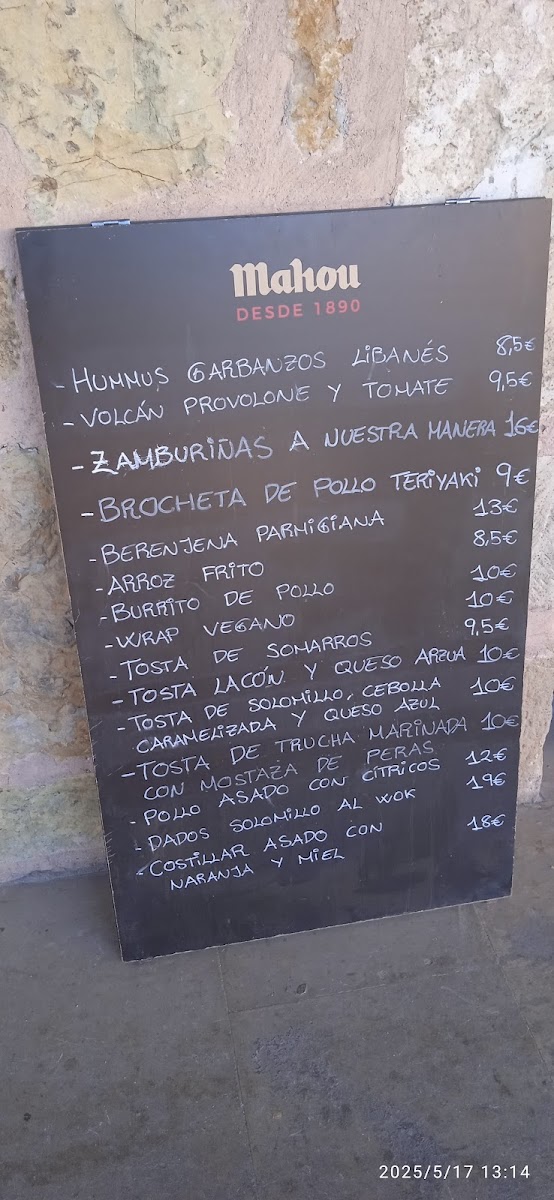 Mahou
DESDE 1890
- HUMMUS GARBANZOS LIBANÉS 8,5€
- VOLCÁN PROVOLONE Y TOMATE 9,5€
- ZAMBURIÑAS A NUESTRA MANERA 16€
- BROCHETA DE POLLO TERIYAKI 9€
- BERENJENA PARMIGIANA 13€
- ARROZ FRITO 8,5€
- BURRITO DE POLLO 10€
- WRAP VEGANO 10€
- TOSTA DE SOMARROS 9,5€
- TOSTA LACÓN Y QUESO ARZUA 10€
- TOSTA DE SOLOMILLO, CEBOLLA 10€
CARAMELIZADA Y QUESO AZUL
- TOSTA DE TRUCHA MARINADA 10€
CON MOSTAZA DE PERAS
- POLLO ASADO CON CÍTRICOS 12€
- DADOS SOLOMILLO AL WOK 19€
- COSTILLAR ASADO CON 18€
NARANJA Y MIEL
2025/5/17 13:14